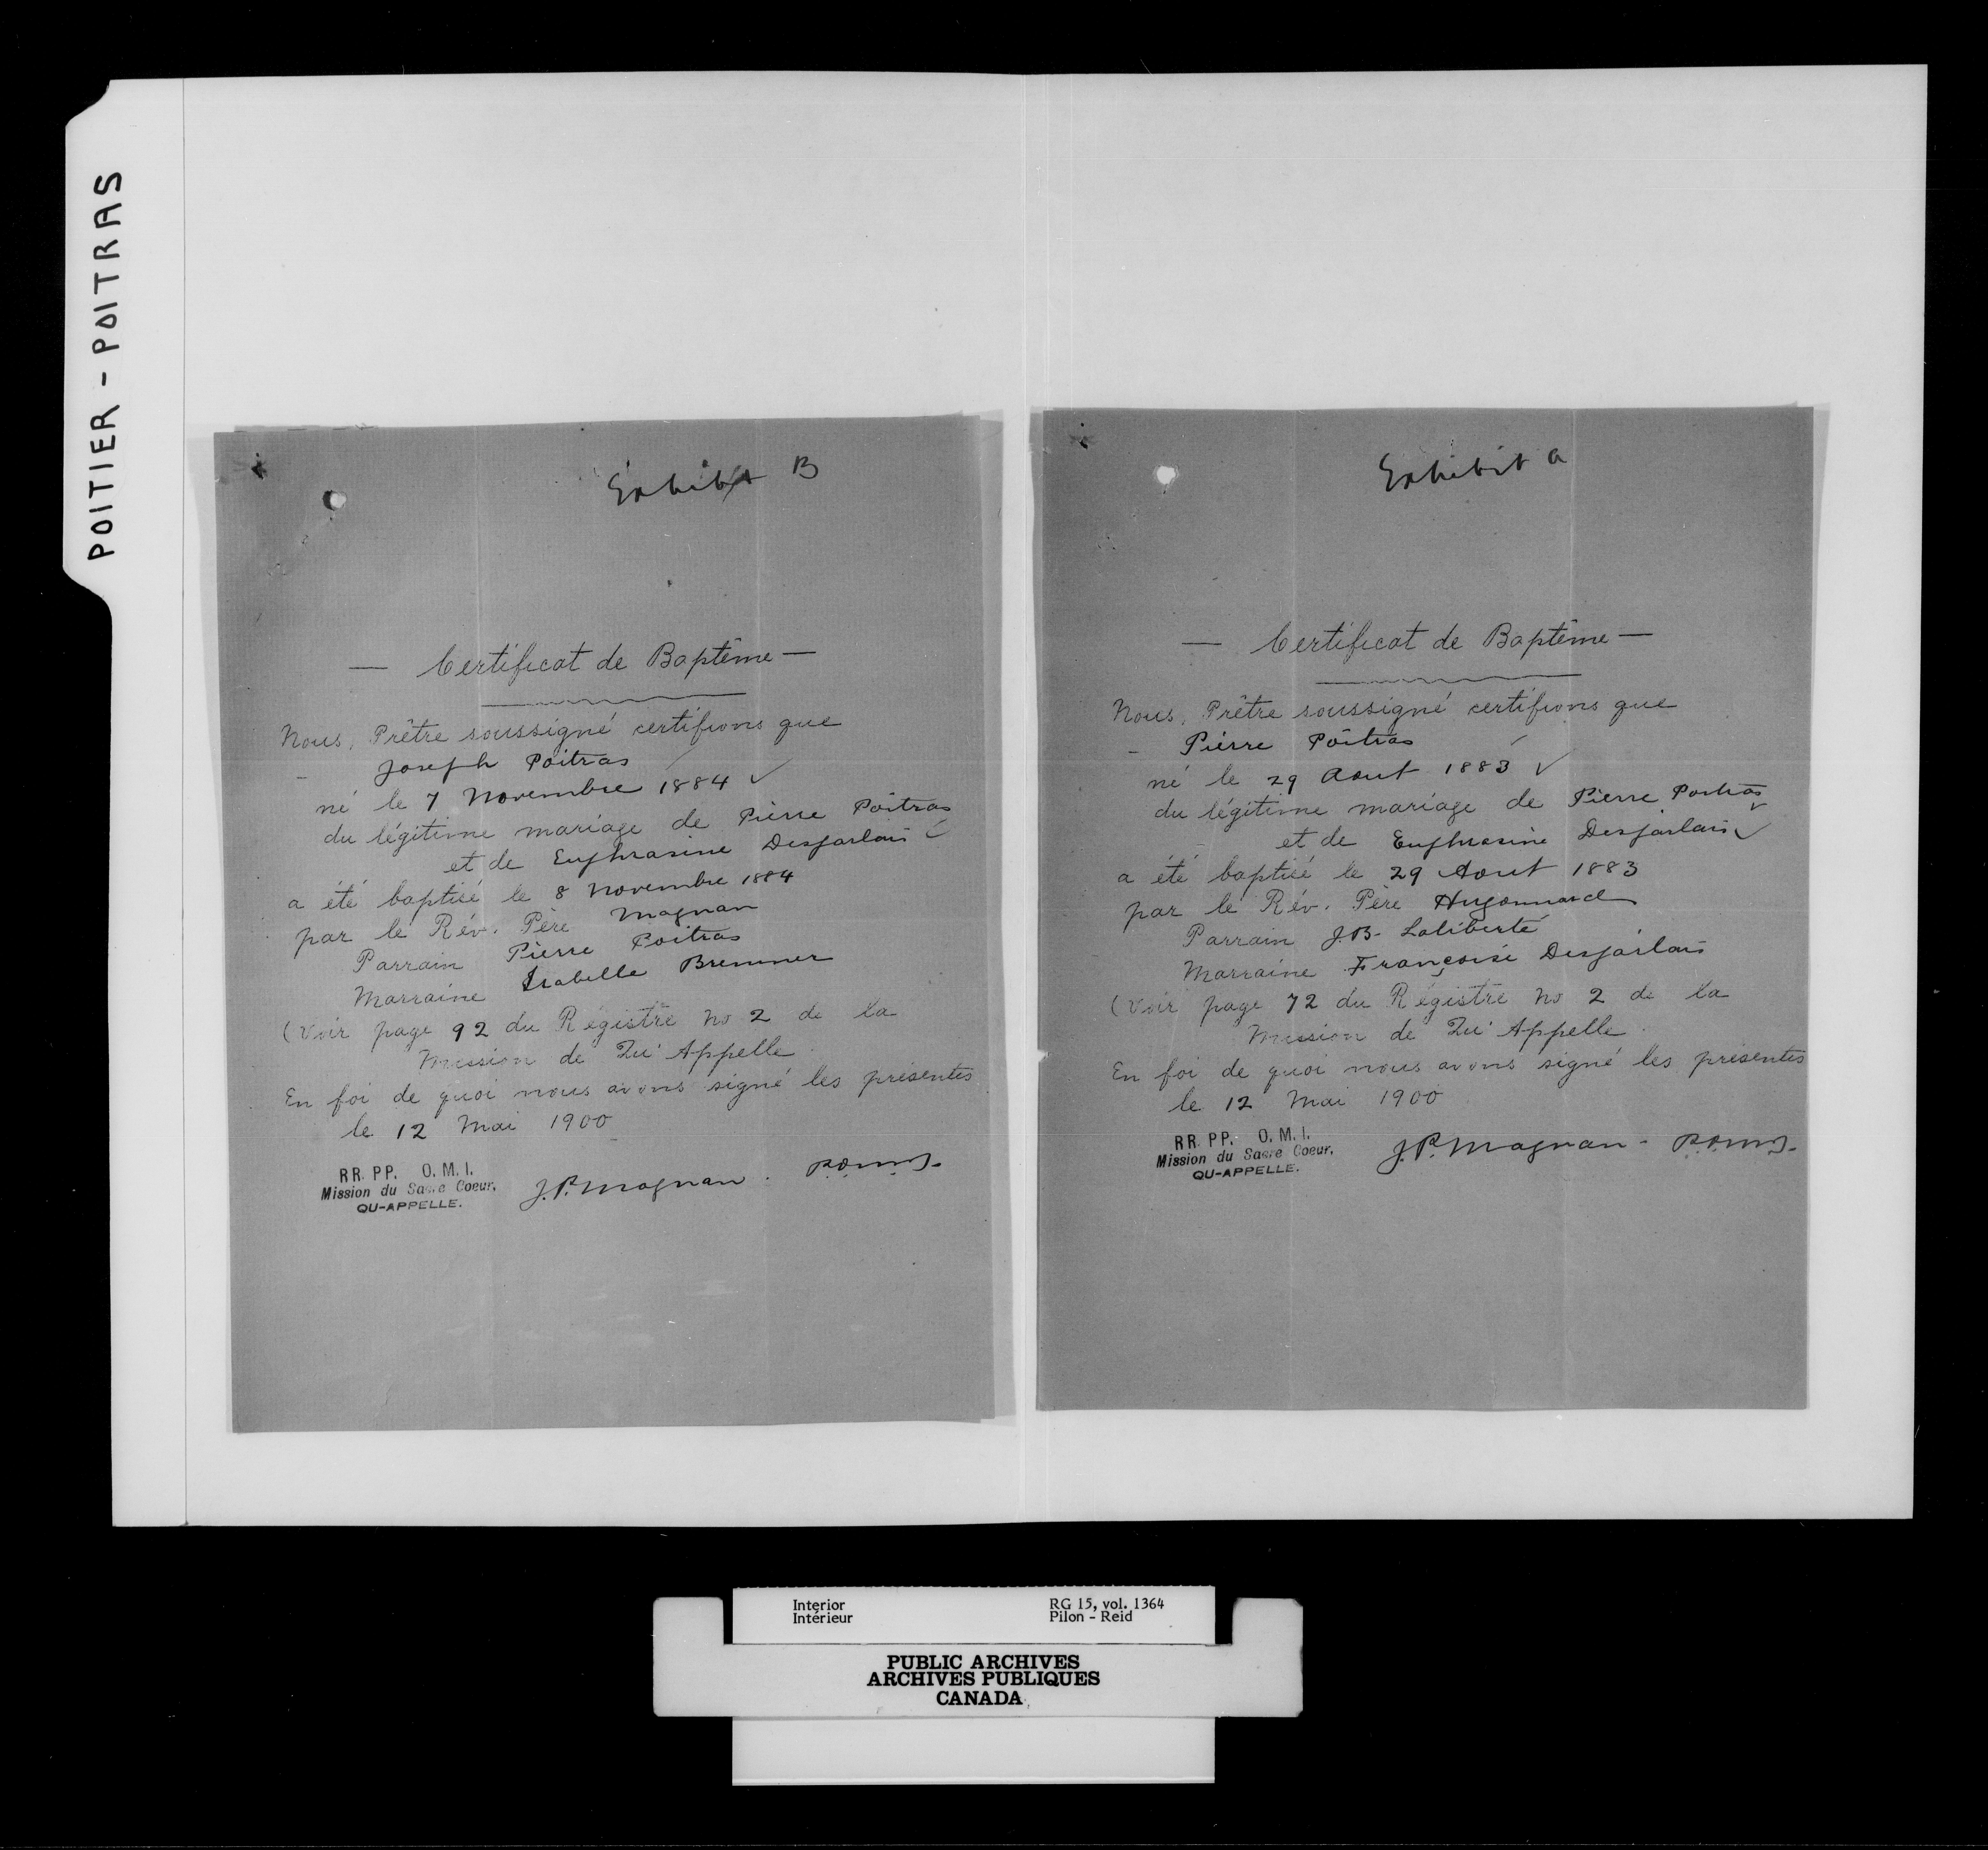 POITIER - POITRAS
Exhibit B
— Certificat de Baptême —
Nous, Prêtre soussigné certifions que
Joseph Poitras
né le 7 Novembre 1884 ✓
du légitime mariage de Pierre Poitras
et de Euphrasine Desjarlais ✓
a été baptisé le 8 Novembre 1884
par le Rév. Père Magnan
Parrain Pierre Poitras
Marraine Isabelle Bremner
(Voir page 92 du Régistre No 2 de la
Mission de Qu'Appelle.
En foi de quoi nous avons signé les présentes
le 12 Mai 1900
RR. PP. O. M. I.
Mission du Sacre Coeur,
QU-APPELLE.
J.P. Magnan. P.O.M.I.
Exhibit A
— Certificat de Baptême —
Nous, Prêtre soussigné certifions que
Pierre Poitras
né le 29 Aout 1883 ✓
du légitime mariage de Pierre Poitras ✓
et de Euphrasine Desjarlais ✓
a été baptisé le 29 Aout 1883
par le Rév. Père Hugonnard
Parrain J.B. Laliberté
Marraine Françoise Desjarlais
(Voir page 72 du Régistre No 2 de la
Mission de Qu'Appelle.
En foi de quoi nous avons signé les présentes
le 12 Mai 1900
RR. PP. O. M. I.
Mission du Sacre Coeur,
QU-APPELLE.
J.P. Magnan. P.O.M.I.
Interior RG 15, vol. 1364
Intérieur Pilon - Reid
PUBLIC ARCHIVES
ARCHIVES PUBLIQUES
CANADA